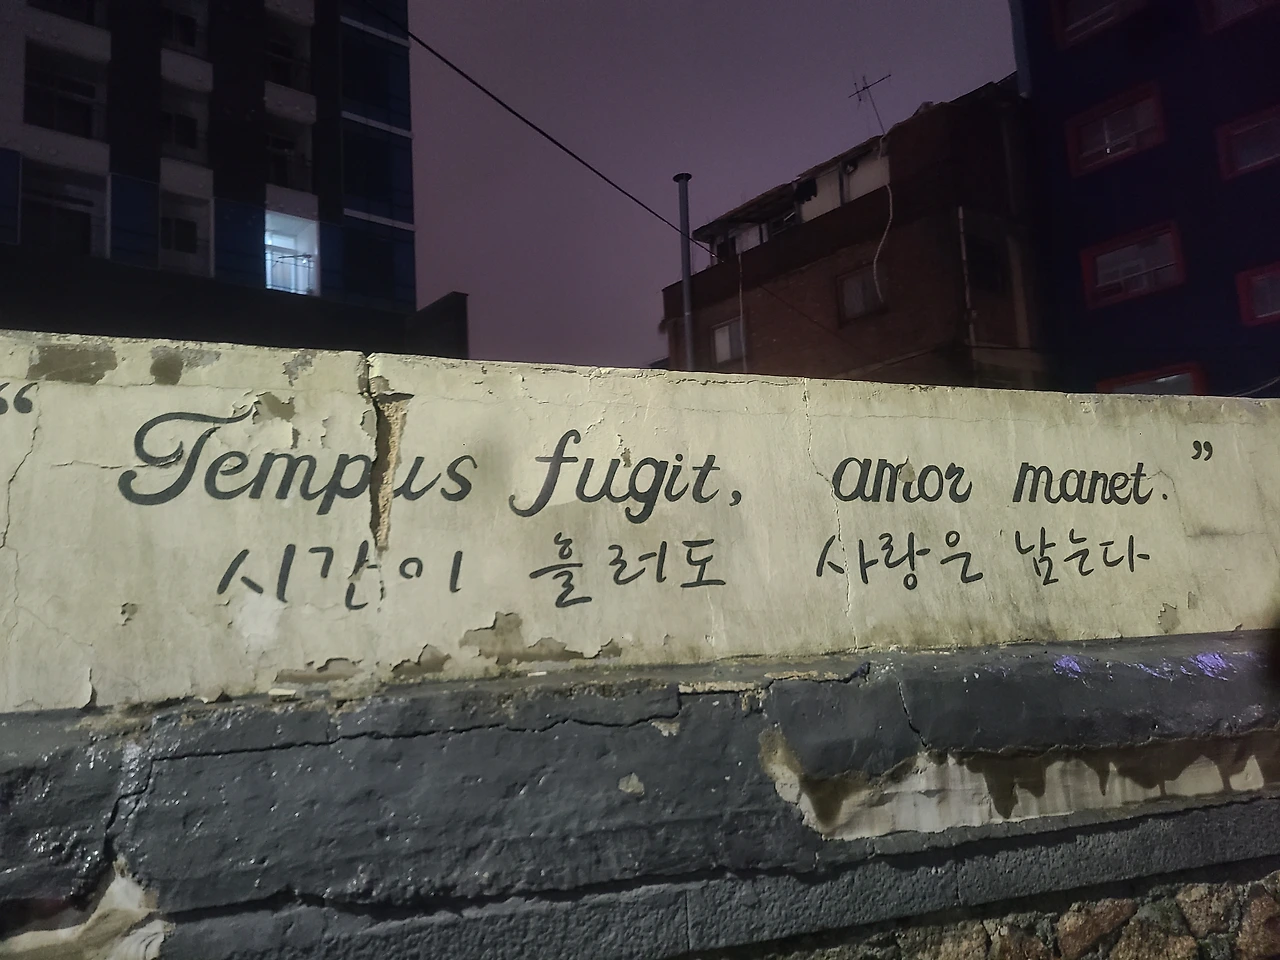 “ Tempus fugit, amor manet. ”
시간이 흘러도 사랑은 남는다